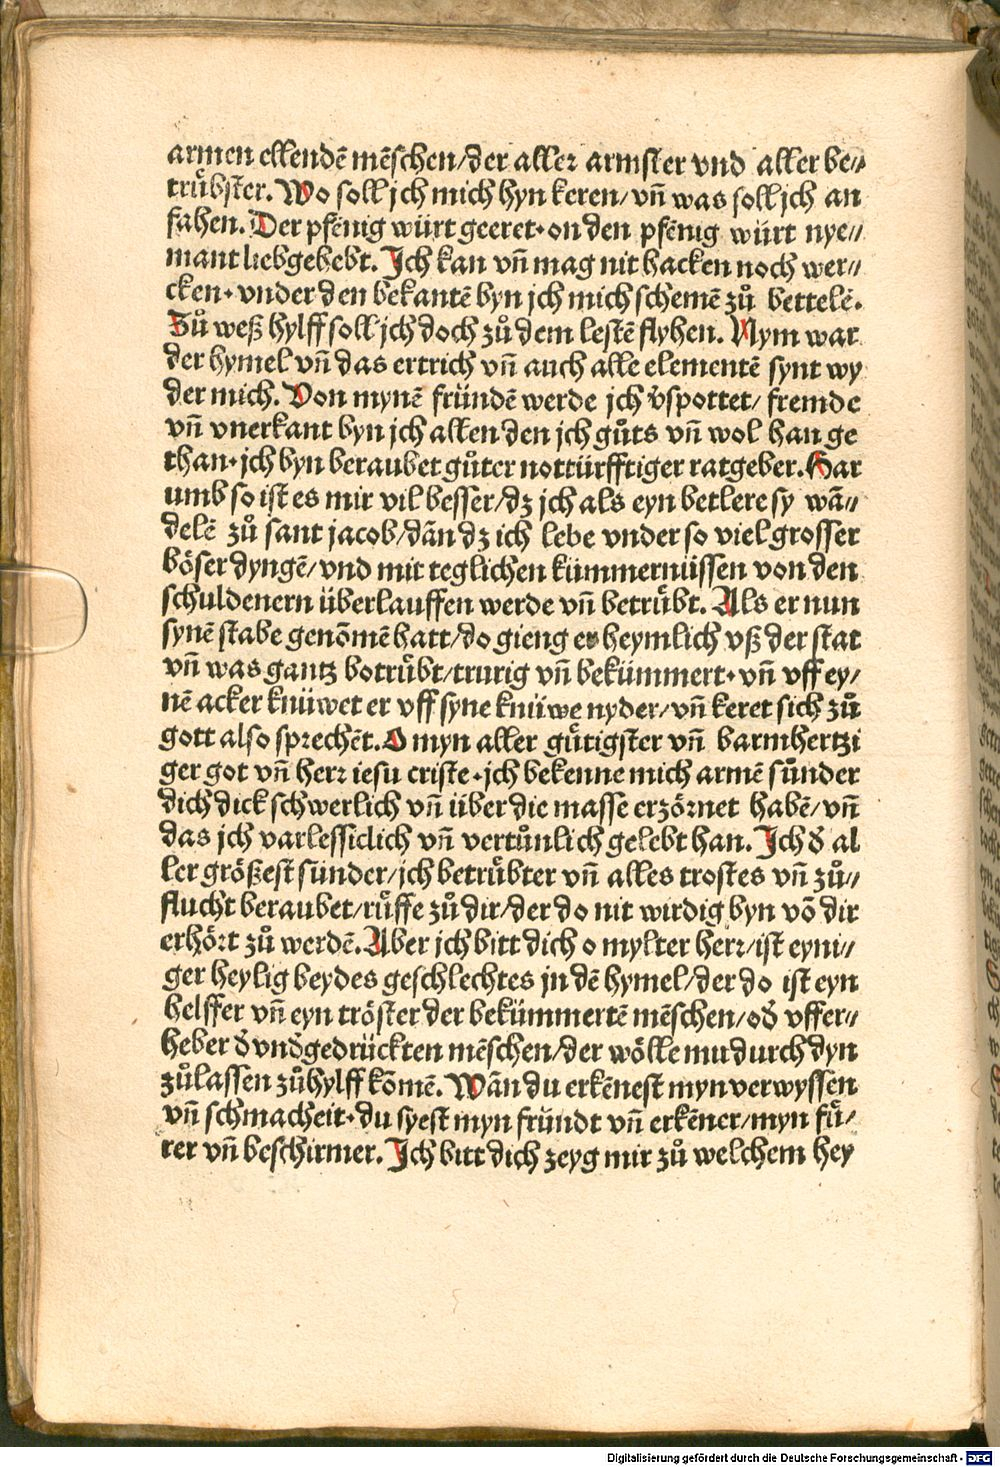 armen ellendē mēschen/der aller armster vnd aller be⸗
trůbster. Wo soll jch mich hyn keren/vn̄ was soll jch an
fahen. Der pfēnig würt geeret·on den pfēnig würt nye⸗
mant liebgehebt. Ich kan vn̄ mag nit hacken noch wer⸗
cken·vnder den bekantē byn jch mich schemē zů bettelē.
Zů weß hylff soll jch doch zů dem lestē flyhen. Nym war
der hymel vn̄ das ertrich vn̄ auch alle elementē synt wy
der mich. Von mynē fründē werde jch v̄spottet/ fremde
vn̄ vnerkant byn jch allen den jch gůts vn̄ wol han ge
than·jch byn beraubet gůter nottürfftiger ratgeber. Har
umb so ist es mir vil besser/dz jch als eyn betlere sy wā⸗
delē zů sant jacob/dān dz ich lebe vnder so viel grosser
böser dyngē/vnd mit teglichen kümmernüssen von den
schuldenern überlauffen werde vn̄ betrůbt. Als er nun
synē stabe genōmē hatt/do gieng er heymlich vß der stat
vn̄ was gantz botrůbt/trurig vn̄ bekümmert·vn̄ vff ey/
nē acker knüwet er vff syne knüwe nyder/vn̄ keret sich zů
gott also sprechēt. O myn aller gůtigster vn̄ barmhertzi
ger got vn̄ herr iesu criste·jch bekenne mich armē sůnder
dich dick schwerlich vn̄ über die masse erzörnet habē/vn̄
das jch varlessiclich vn̄ vertůnlich gelebt han. Ich d̄ al
ler größest sünder/jch betrůbter vn̄ alles trostes vn̄ zů⸗
flucht beraubet/růffe zů dir/der do nit wirdig byn vō dir
erhört zů werdē. Aber jch bitt dich o mylter herr/ist eyni⸗
ger heylig beydes geschlechtes jn dē hymel/der do ist eyn
helffer vn̄ eyn tröster der bekümmertē mēschen/od̄ vffer⸗
heber d̄ vnd̄gedrückten mēschen/der wölle mir durch dyn
zůlassen zůhylff kōmē. Wān du erkēnest myn verwyssen
vn̄ schmacheit·du syest myn fründt vn̄ erkēner/myn fů⸗
rer vn̄ beschirmer. Ich bitt dich zeyg mir zů welchem hey
Digitalisierung gefördert durch die Deutsche Forschungsgemeinschaft - DFG